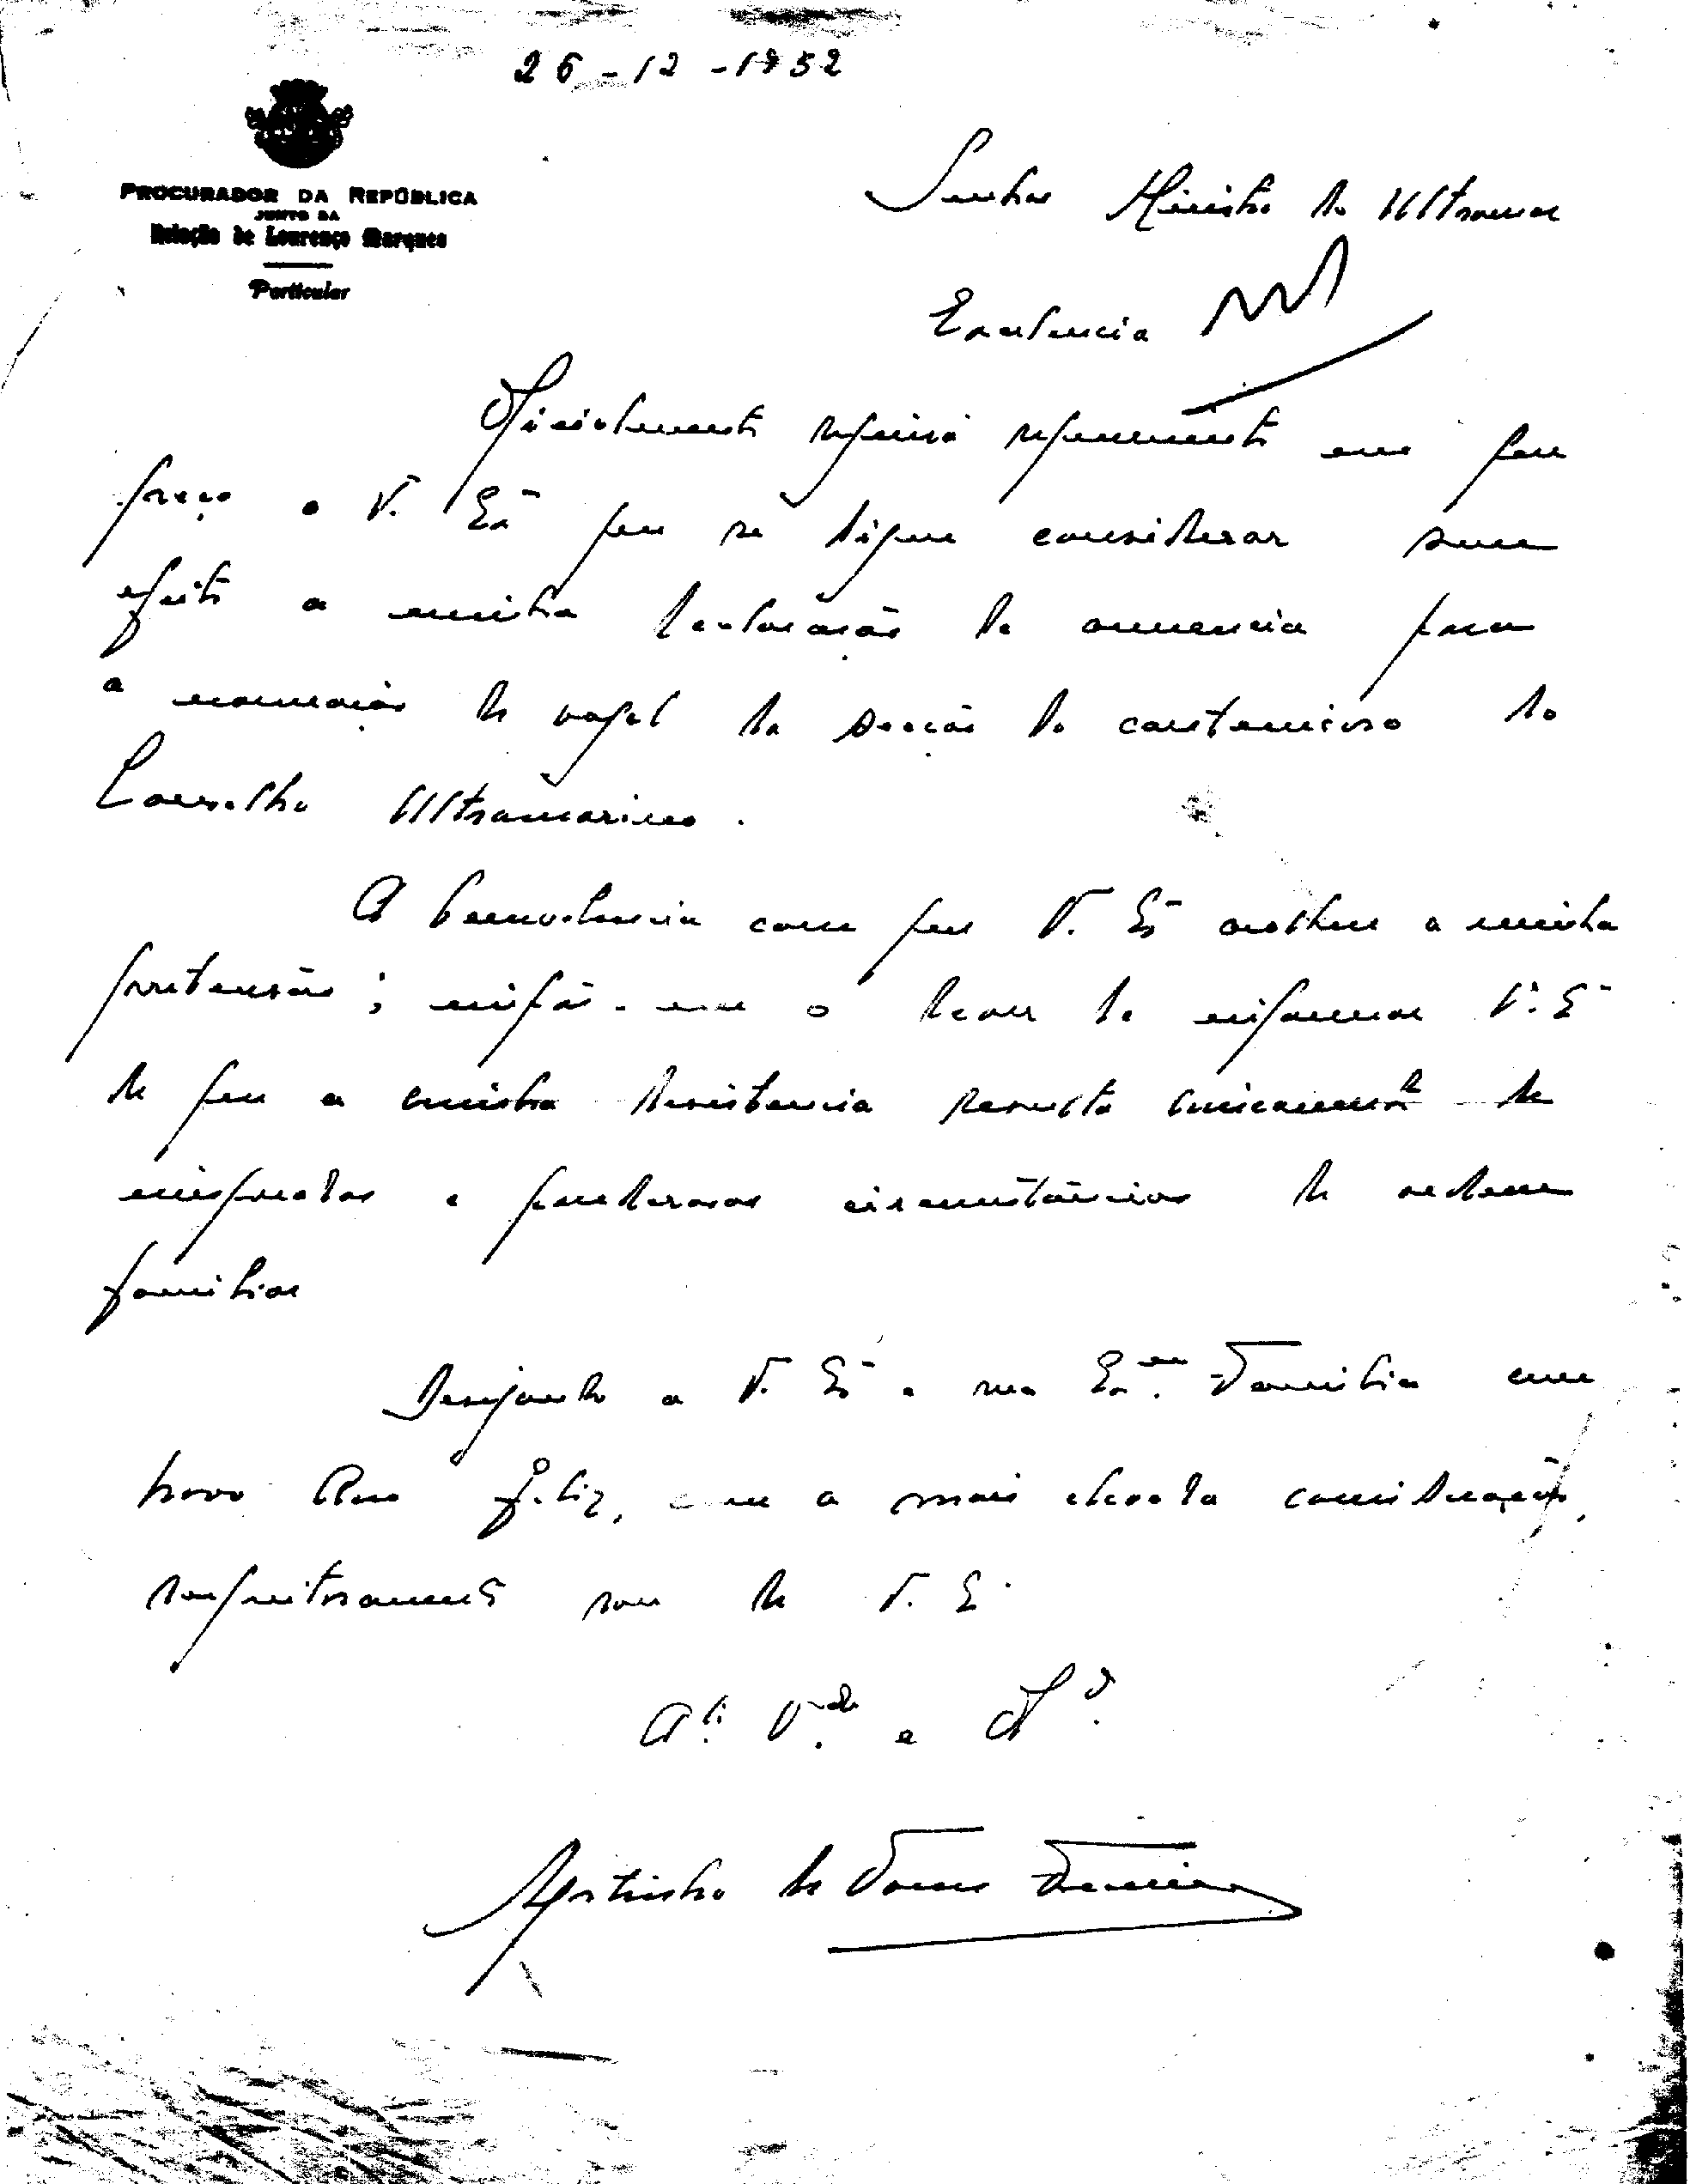 26-12-1952
PROCURADOR DA REPÚBLICA
JUNTO DA
Relação de Lourenço Marques
Particular
Senhor Ministro do Ultramar
Excelencia
Oficialmente requerimento em que
peço a V. Exª que se digne considerar sem
efeito a minha declaração de anuencia para
a nomeação de vogal da secção do contencioso do
Conselho Ultramarino.
A benevolencia com que V. Exª acolheu a minha
pretensão, impõe-me o dever de informar V. Eª
de que a minha desistencia resulta unicamente de
inesperadas e ponderosas circunstâncias de ordem
familiar
Desejando a V. Exª e sua Exma. Familia um
novo Ano feliz, com a mais elevada consideração,
respeitosamente sou de V. E.
At. V.dor e
Agostinho de Torres Fevereiro